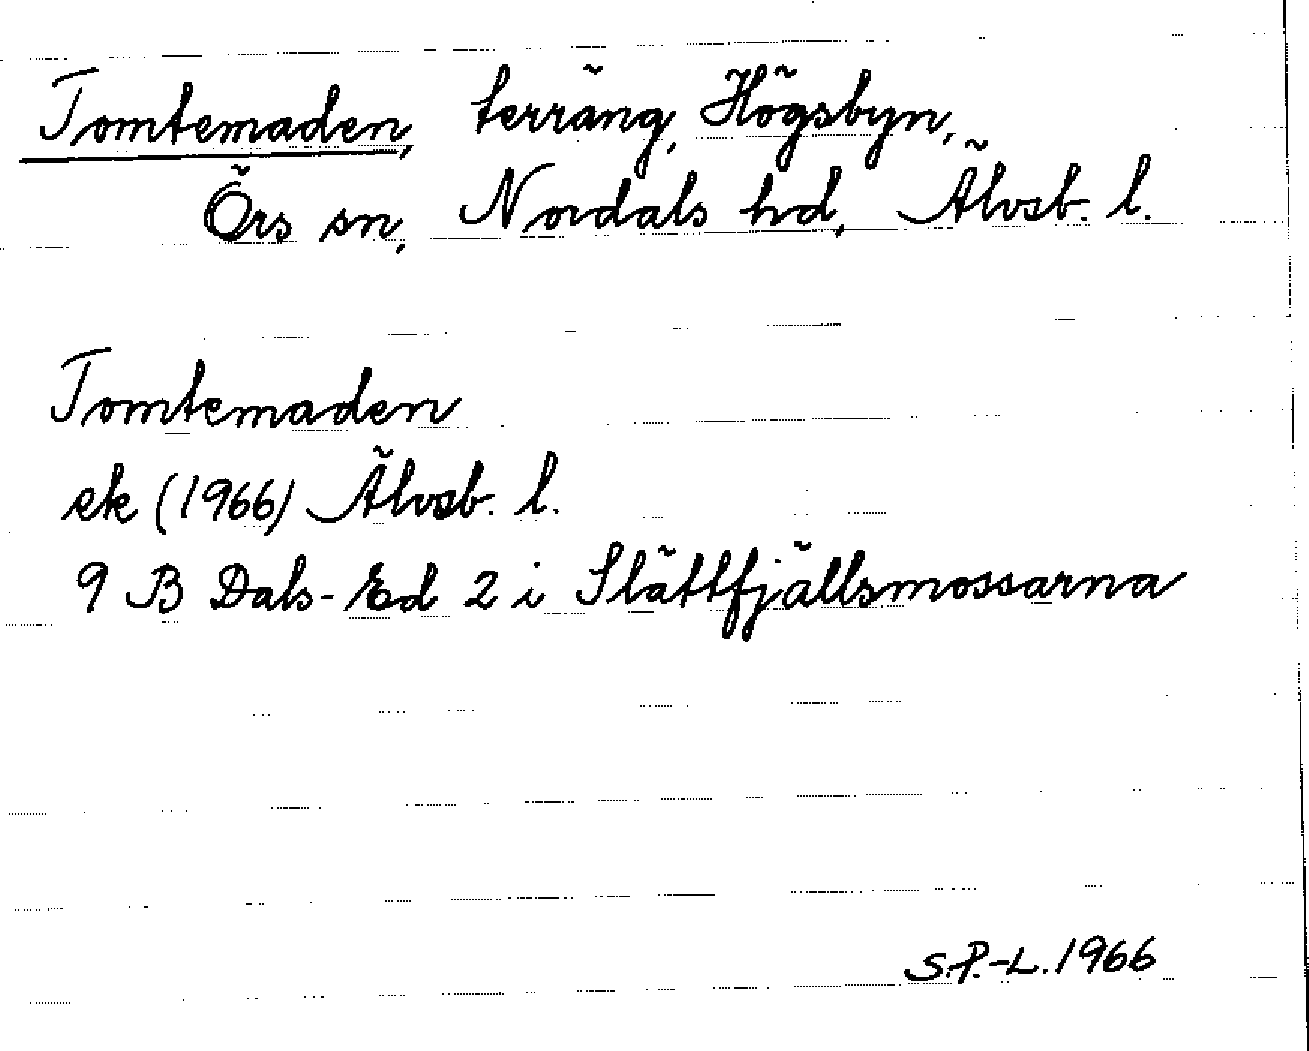 Tomtemaden, terräng, Högsbyn,
Örs sn, Nordals hd, Älvsb. l.
Tomtemaden
ek (1966) Älvsb. l.
9 B Dals-Ed 2 i Slättfjällsmossarna
S.P.-L. 1966